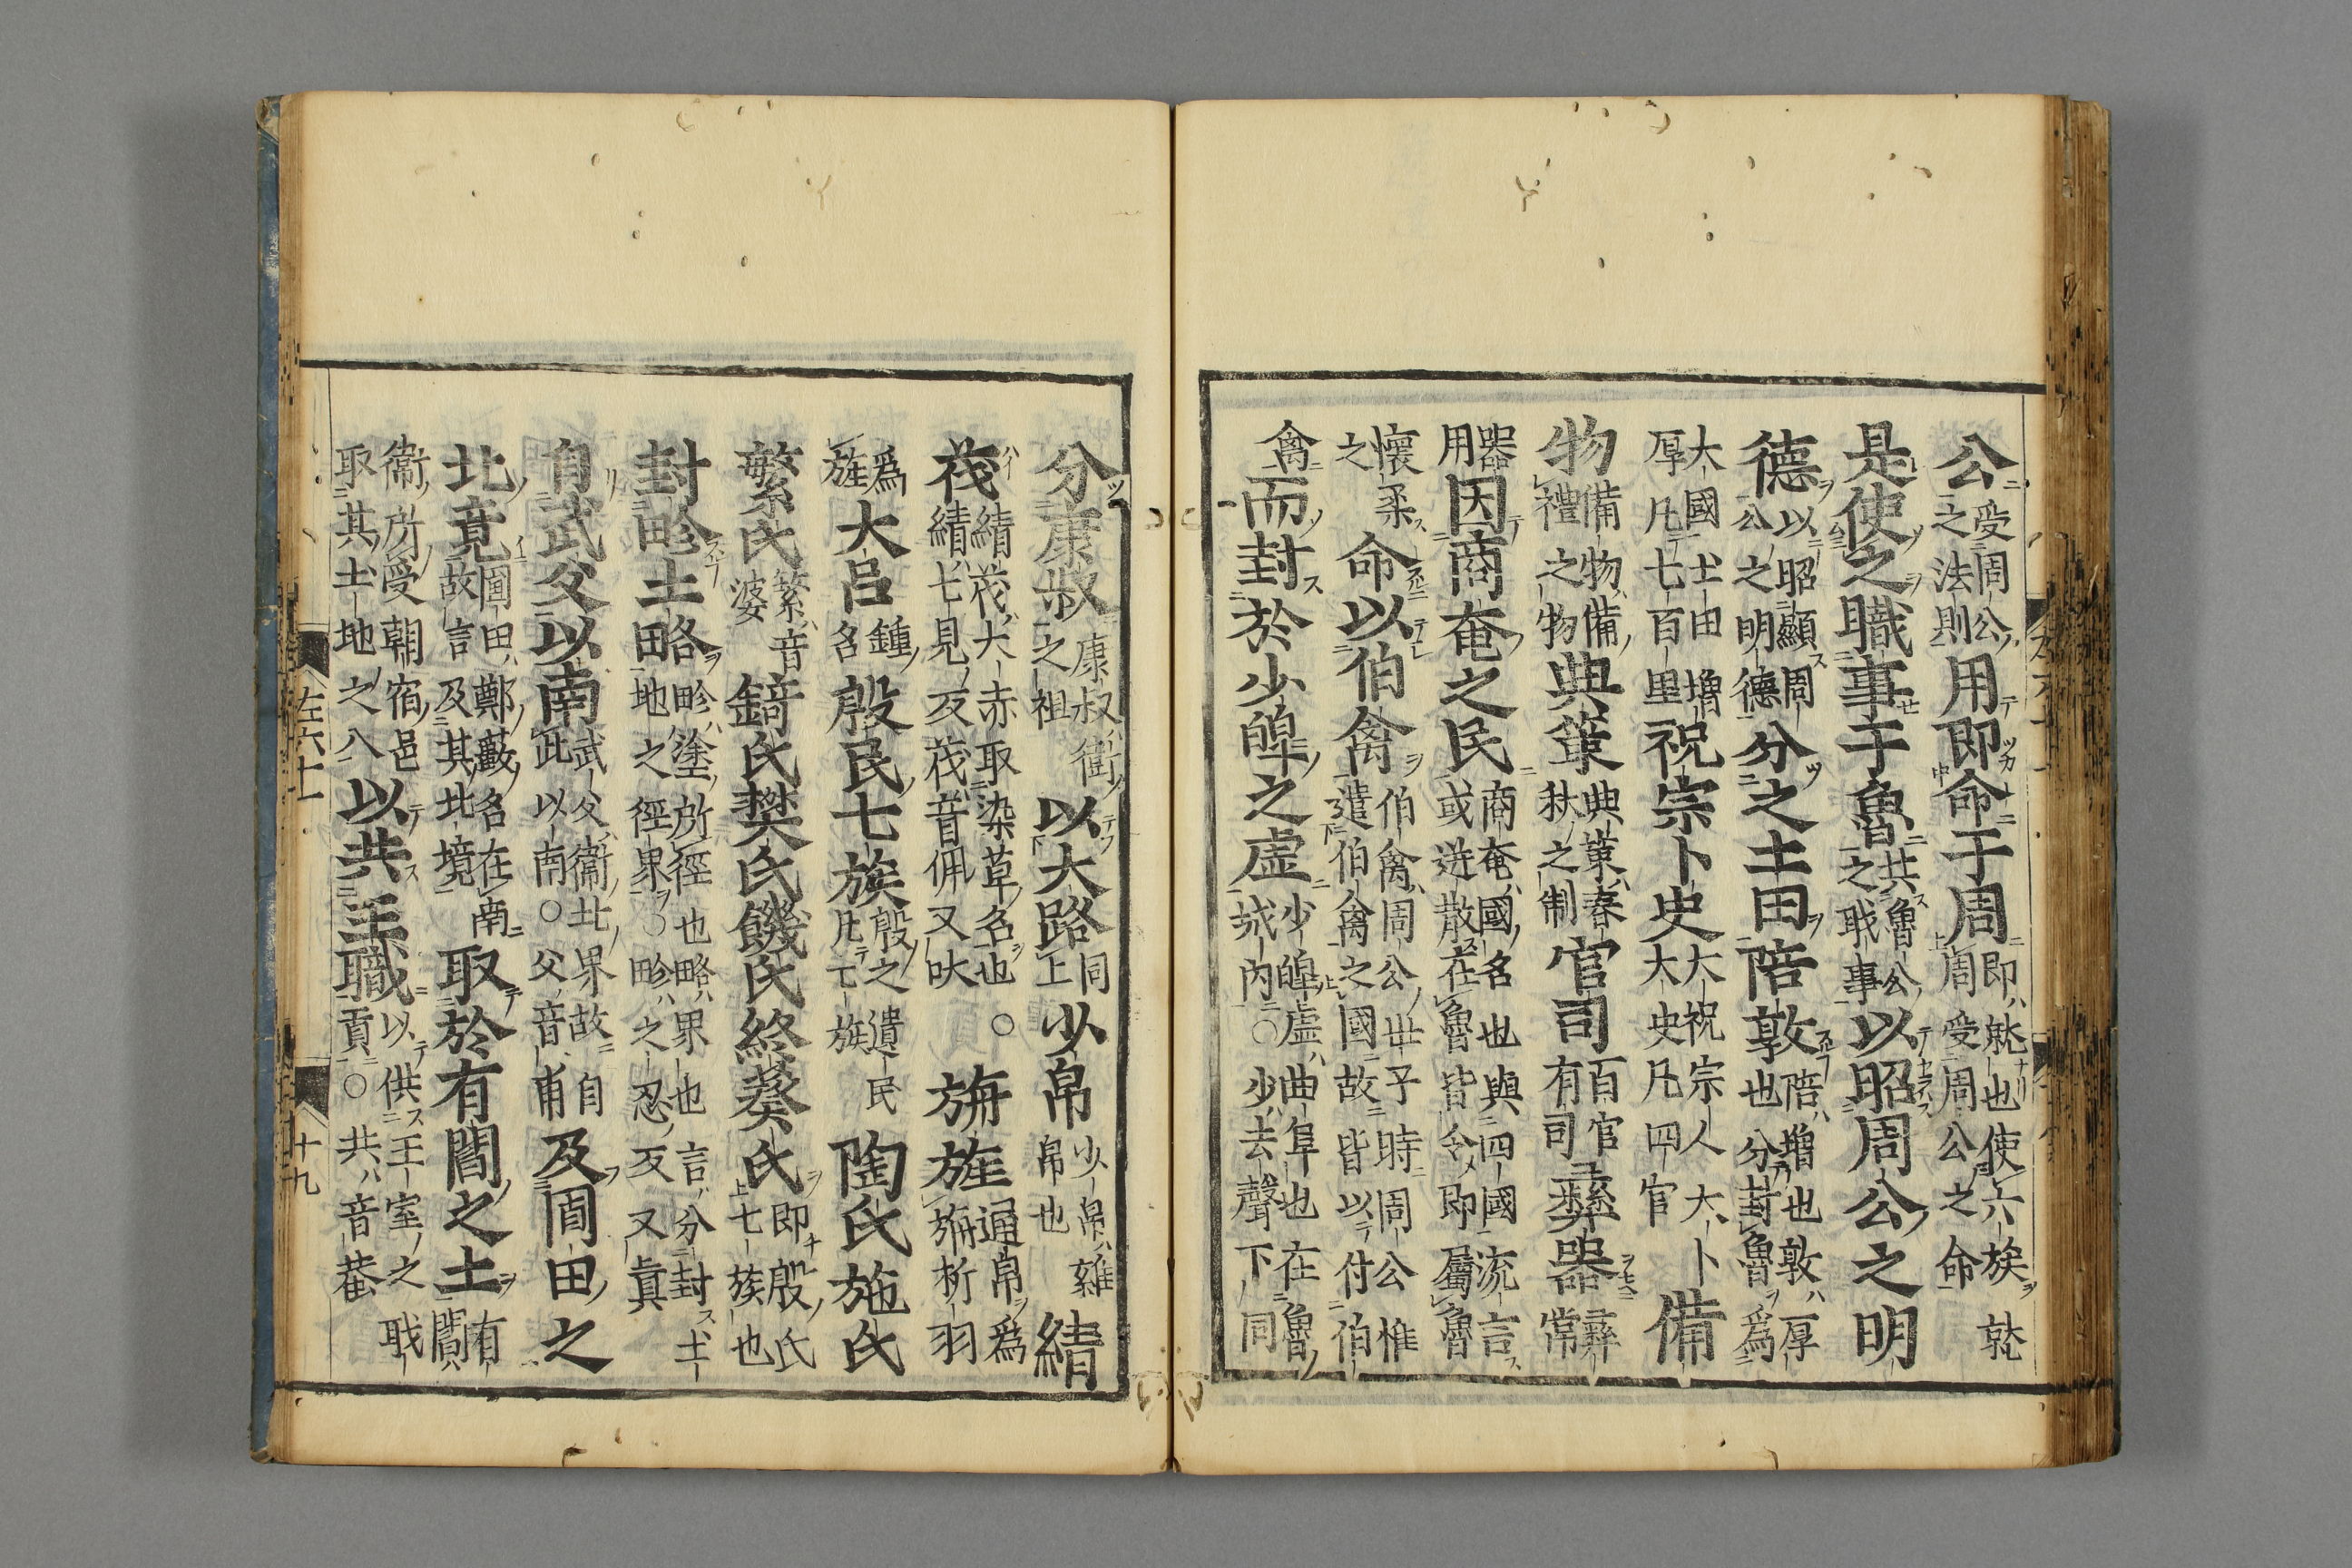 公受周公之法則用即命于周即就也使六族就周受周公之命
是使之職事于魯共魯公之職事以昭周公之明
德以昭顯周公之明德分之土田陪敦陪增也敦厚也分封魯爲
大國土田增厚凡七百里祝宗卜史大祝宗人大卜大史凡四官備
物備物備禮之物典策典策春秋之制官司百官有司彞器彞常
器用因商奄之民商奄國名也與四國流言或迸散在魯皆令即屬魯
懷柔之命以伯禽伯禽周公世子時周公惟遣伯禽之國故皆以付伯
禽而封於少皥之虛少皥虛曲阜也在魯城內○少去聲下同
分康叔康叔衞之祖以大路同上少帛少帛雜帛也綪
茷綪茷大赤取染草名也綪七見反茷音佩又吠○旃旌通帛爲旃析羽
爲旌大呂鍾名殷民七族殷之遺民凡七族陶氏施氏
繁氏繁音婆錡氏樊氏饑氏終葵氏即上七殷氏族也
封畛土略畛塗所徑也略界也言分封土地之徑界○畛之忍反又眞
自武父以南武父衞北界故自此以南○父音甫及圃田之
北竟圃田鄭藪名在南故言及其北境取於有閻之土有閻
衞所受朝宿邑以共王職以供王室之職取其土地之八貢○共音恭
左六十
十九